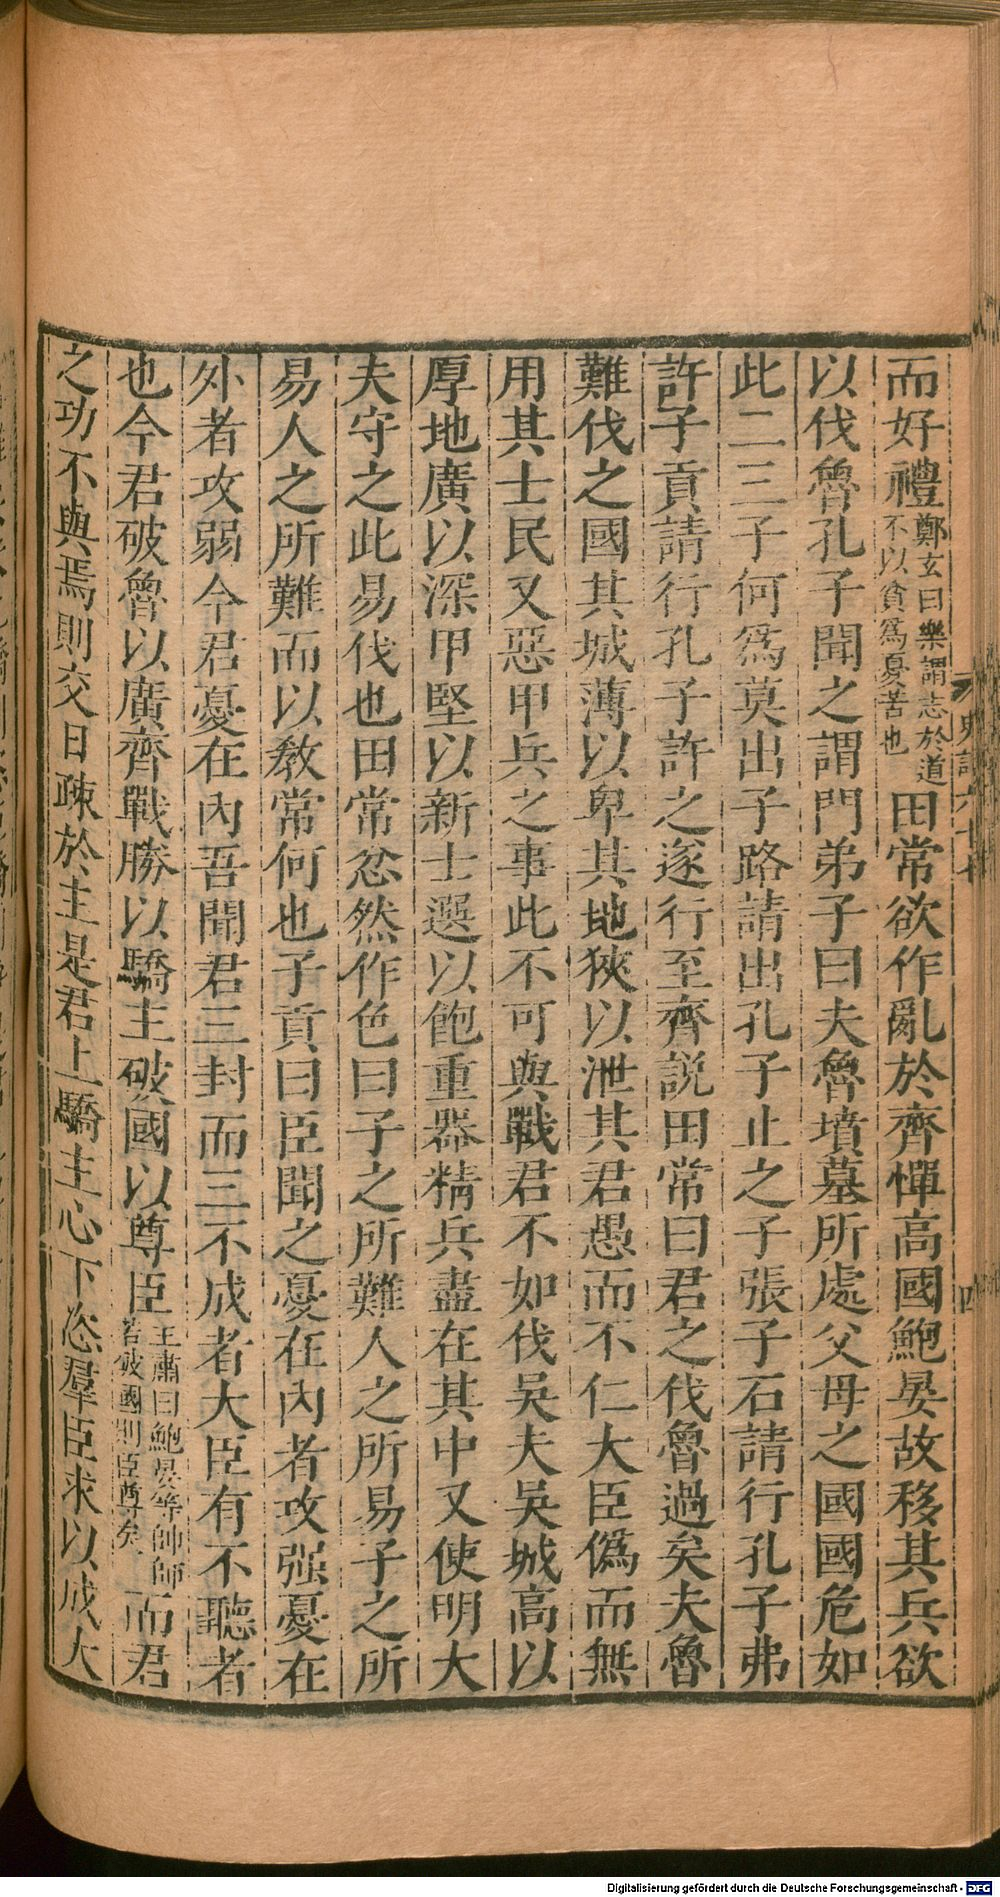 而好禮鄭玄曰樂謂志於道不以貧爲憂苦也田常欲作亂於齊憚高國鮑晏故移其兵欲
以伐魯孔子聞之謂門弟子曰夫魯墳墓所處父母之國國危如
此二三子何爲莫出子路請出孔子止之子張子石請行孔子弗
許子貢請行孔子許之遂行至齊説田常曰君之伐魯過矣夫魯
難伐之國其城薄以卑其地狹以泄其君愚而不仁大臣僞而無
用其士民又惡甲兵之事此不可與戰君不如伐吳夫吳城高以
厚地廣以深甲堅以新士選以飽重器精兵盡在其中又使明大
夫守之此易伐也田常忿然作色曰子之所難人之所易子之所
易人之所難而以敎常何也子貢曰臣聞之憂在內者攻强憂在
外者攻弱今君憂在內吾聞君三封而三不成者大臣有不聽者
也今君破魯以廣齊戰勝以驕主破國以尊臣王肅曰鮑晏等帥師若破國則臣尊矣而君
之功不與焉則交日疎於主是君上驕主心下恣羣臣求以成大
史記六十七
四
Digitalisierung gefördert durch die Deutsche Forschungsgemeinschaft - DFG